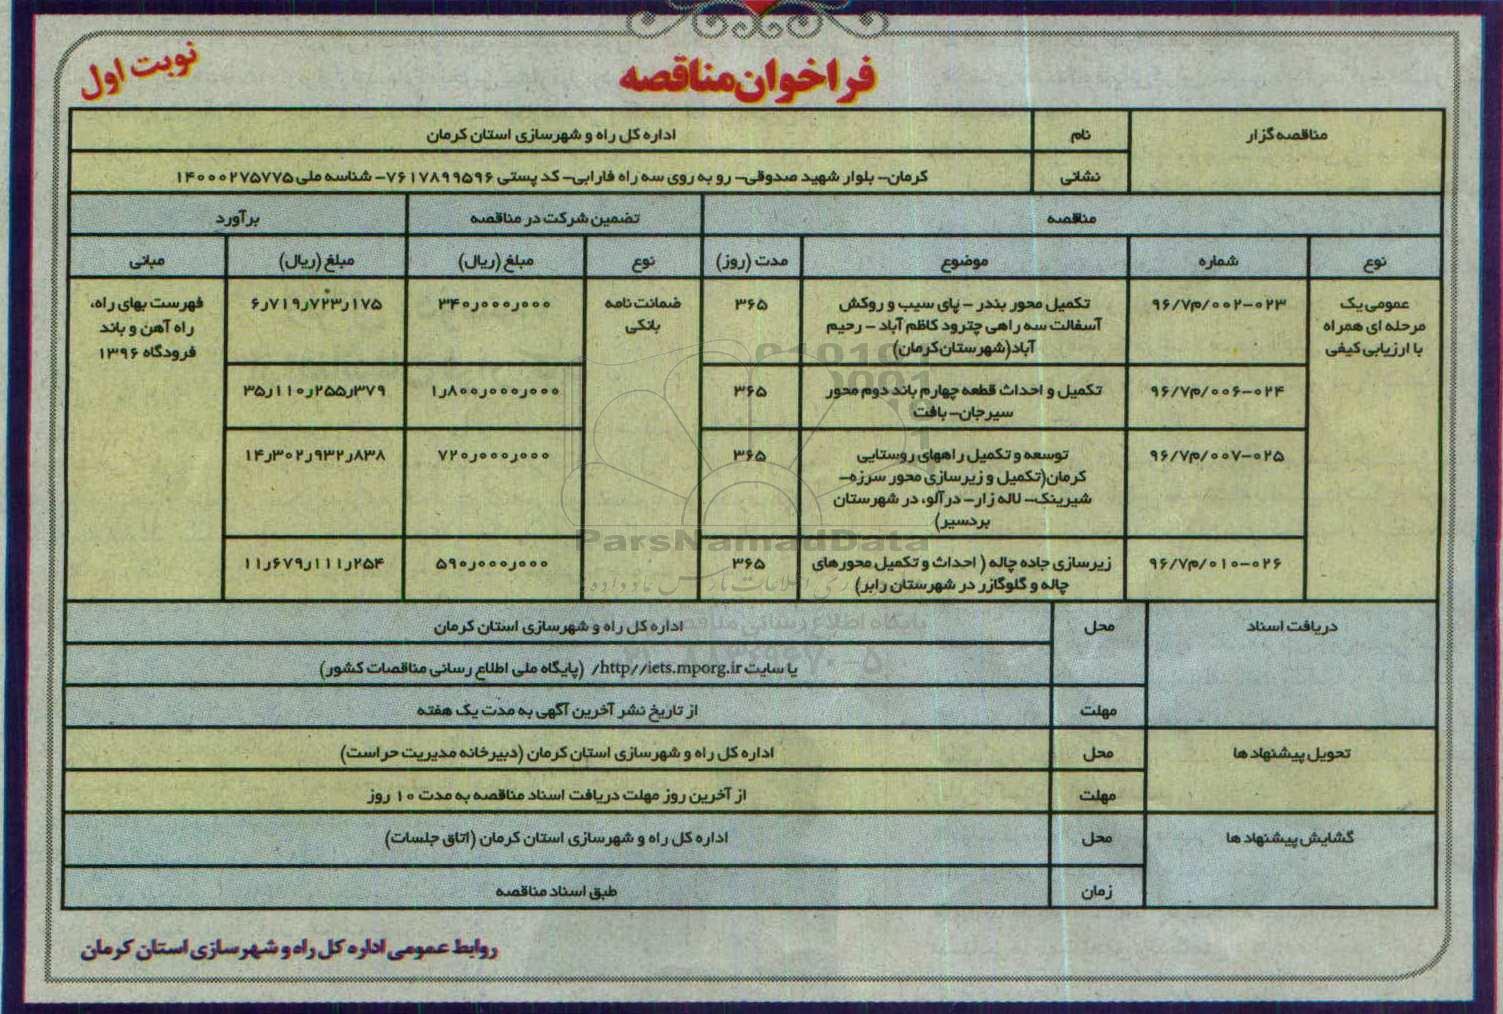 نوبت اول
فراخوان مناقصه
مناقصه گزار
نام
اداره کل راه و شهرسازی استان کرمان
نشانی
کرمان- بلوار شهید صدوقی- رو به روی سه راه فارابی- کد پستی ۷۶۱۷۸۹۹۵۹۶- شناسه ملی ۱۴۰۰۰۲۷۵۷۷۵
مناقصه
تضمین شرکت در مناقصه
برآورد
نوع
شماره
موضوع
مدت (روز)
نوع
مبلغ (ریال)
مبلغ (ریال)
مبانی
عمومی یک
مرحله ای همراه
با ارزیابی کیفی
۹۶/۷م/۰۰۲-۰۲۳
تکمیل محور بندر - پای سیب و روکش
آسفالت سه راهی چترود کاظم آباد - رحیم
آباد(شهرستان کرمان)
۳۶۵
ضمانت نامه
بانکی
۳۴۰٫۰۰۰٫۰۰۰
۶٫۷۱۹٫۷۲۳٫۱۷۵
فهرست بهای راه،
راه آهن و باند
فرودگاه ۱۳۹۶
۹۶/۷م/۰۰۶-۰۲۴
تکمیل و احداث قطعه چهارم باند دوم محور
سیرجان- بافت
۳۶۵
۱٫۸۰۰٫۰۰۰٫۰۰۰
۳۵٫۱۱۰٫۲۵۵٫۳۷۹
۹۶/۷م/۰۰۷-۰۲۵
توسعه و تکمیل راههای روستایی
کرمان(تکمیل و زیرسازی محور سرزه-
شیرینک- لاله زار- درآلو، در شهرستان
بردسیر)
۳۶۵
۷۲۰٫۰۰۰٫۰۰۰
۱۴٫۳۰۲٫۹۳۲٫۸۳۸
۹۶/۷م/۰۱۰-۰۲۶
زیرسازی جاده چاله ( احداث و تکمیل محورهای
چاله و گلوگازر در شهرستان رابر)
۳۶۵
۵۹۰٫۰۰۰٫۰۰۰
۱۱٫۶۷۹٫۱۱۱٫۲۵۴
ParsNamadData
دریافت اسناد
محل
اداره کل راه و شهرسازی استان کرمان
یا سایت http//iets.mporg.ir/ (پایگاه ملی اطلاع رسانی مناقصات کشور)
مهلت
از تاریخ نشر آخرین آگهی به مدت یک هفته
تحویل پیشنهاد ها
محل
اداره کل راه و شهرسازی استان کرمان (دبیرخانه مدیریت حراست)
مهلت
از آخرین روز مهلت دریافت اسناد مناقصه به مدت ۱۰ روز
گشایش پیشنهاد ها
محل
اداره کل راه و شهرسازی استان کرمان (اتاق جلسات)
زمان
طبق اسناد مناقصه
روابط عمومی اداره کل راه و شهرسازی استان کرمان